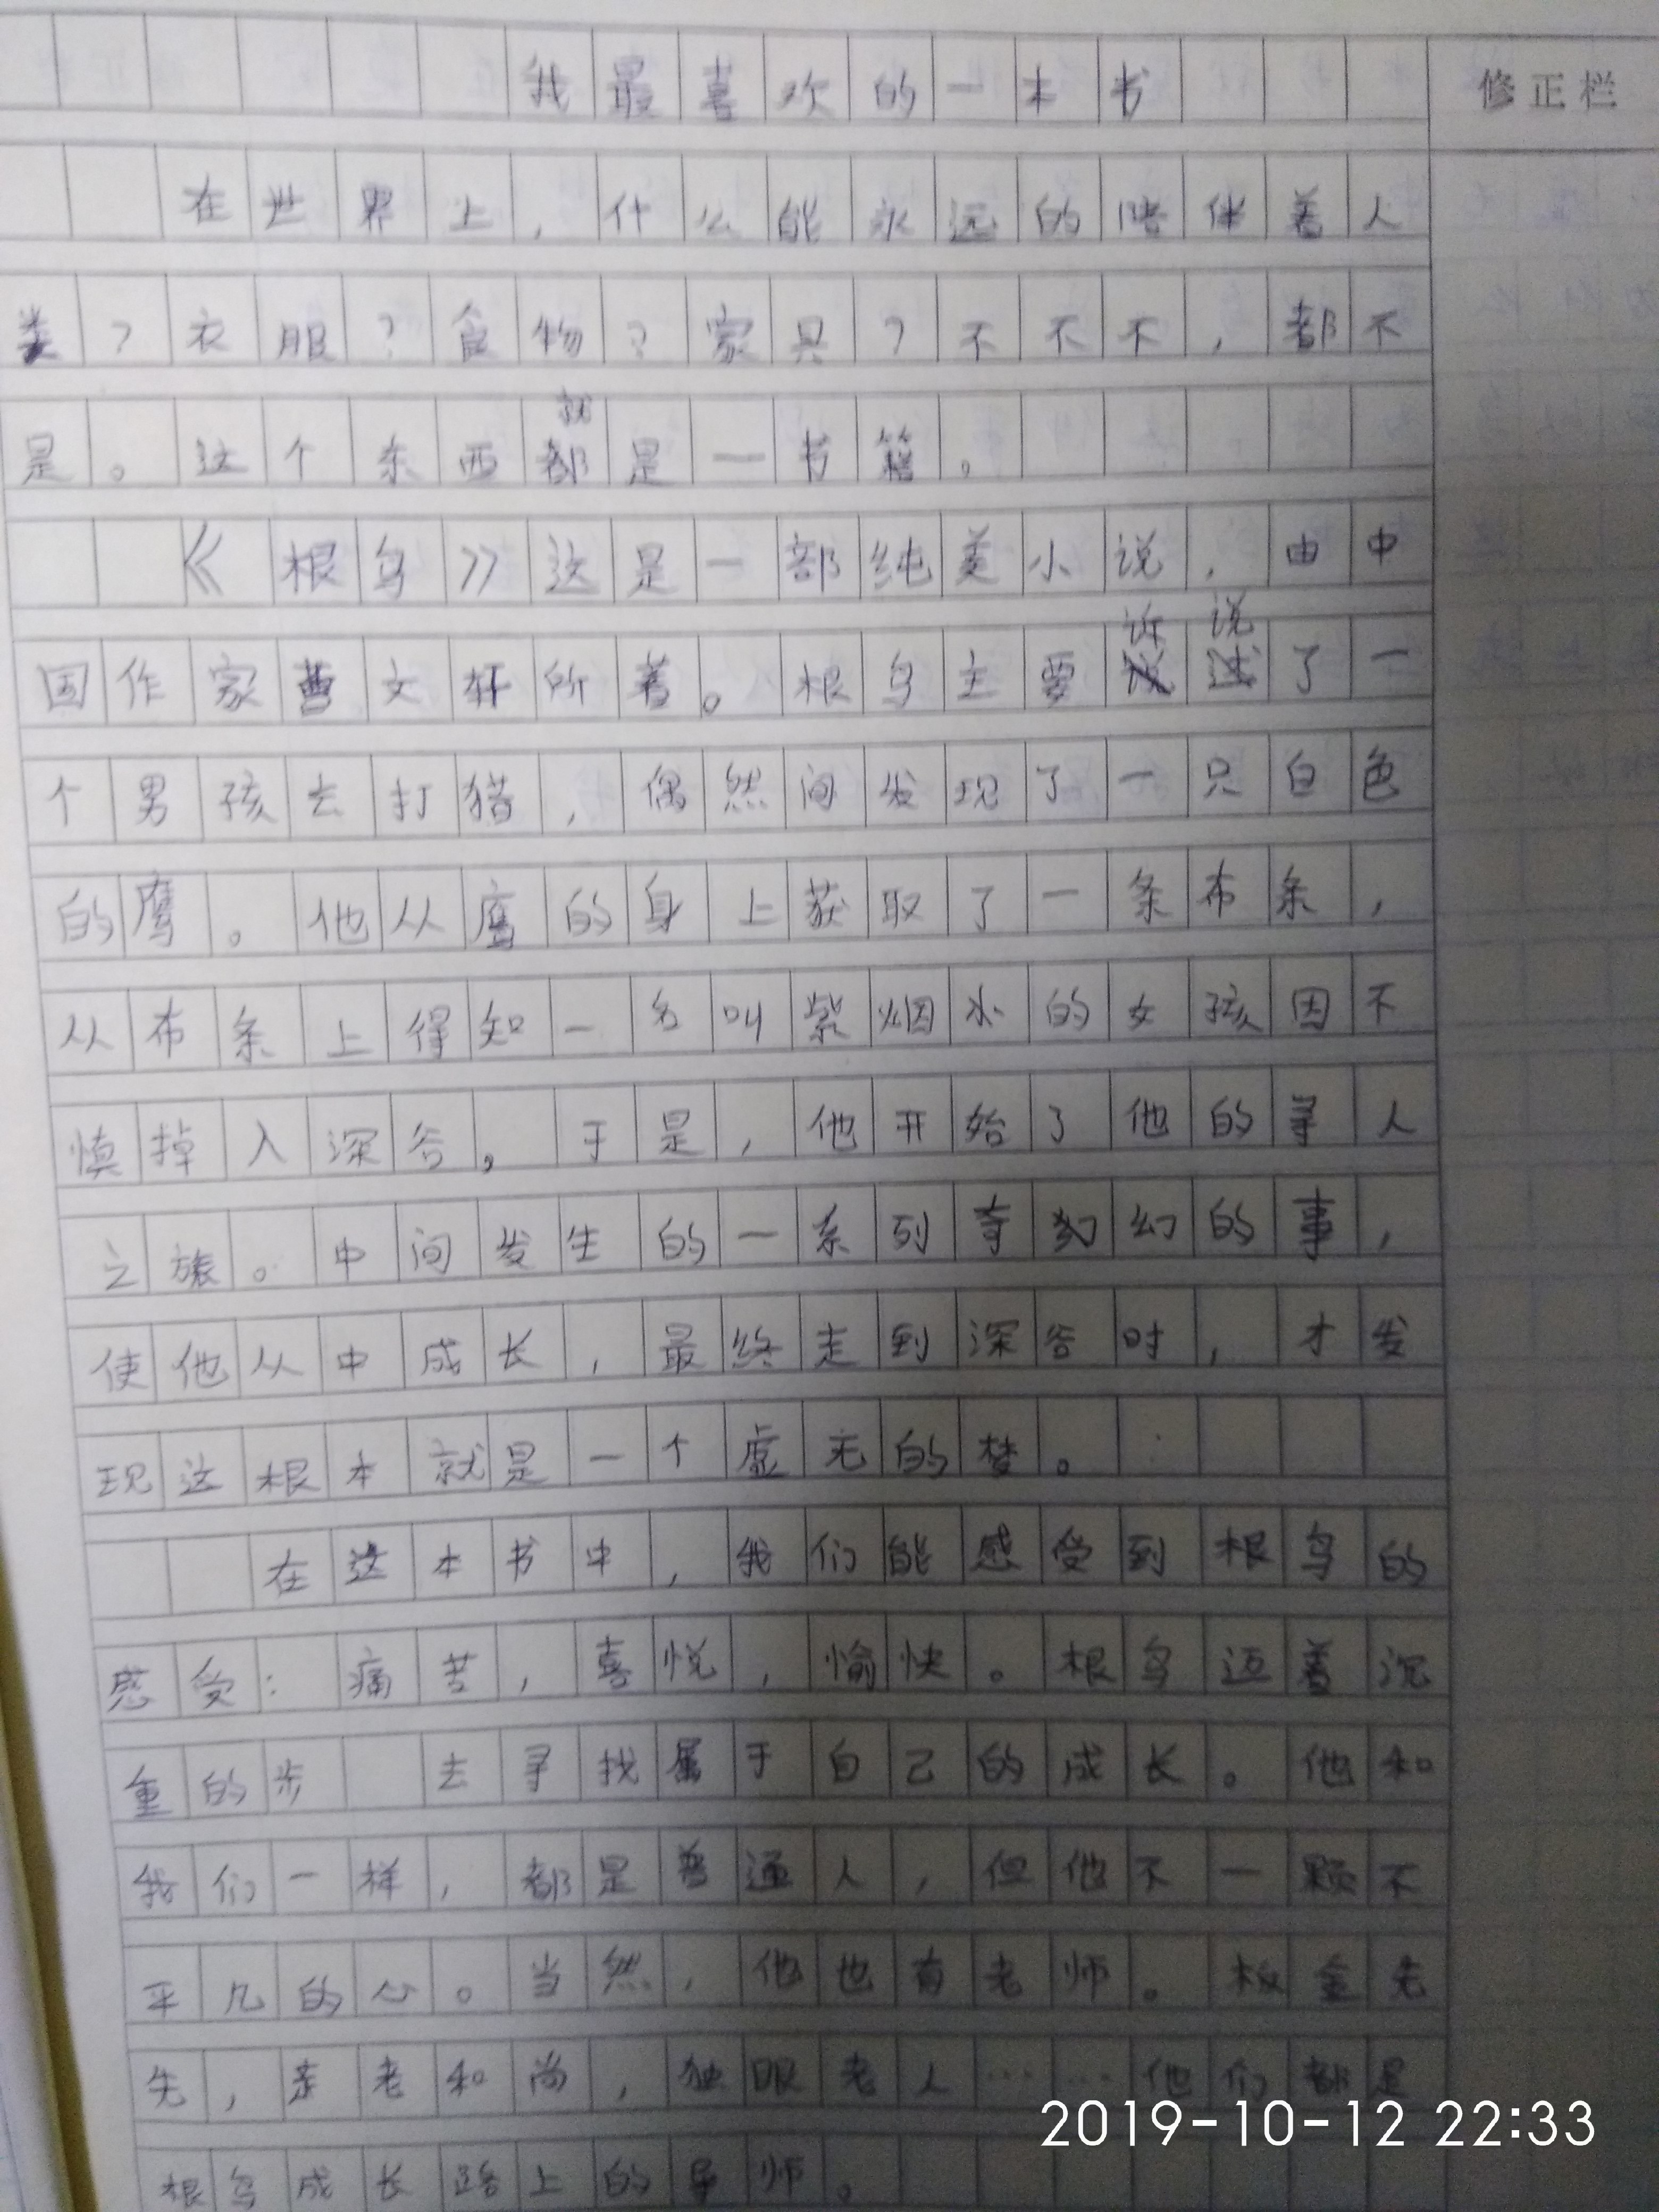 我最喜欢的一本书
修正栏
在世界上，什么能永远的陪伴着人
类？衣服？食物？家具？不不不，都不
就
是。这个东西都是一书籍。
《根鸟》这是一部纯美小说，由中
诉说
国作家曹文轩所着。根鸟主要述了一
个男孩去打猎，偶然间发现了一只白色
的鹰。他从鹰的身上获取了一条布条，
从布条上得知一名叫紫烟水的女孩因不
慎掉入深谷，于是，他开始了他的寻人
之旅。中间发生的一系列奇幻幻的事，
使他从中成长，最终走到深谷时，才发
现这根本就是一个虚无的梦。
在这本书中，我们能感受到根鸟的
感受：痛苦，喜悦，愉快。根鸟迈着沉
重的步 去寻找属于自己的成长。他和
我们一样，都是普通人，但他不一颗不
平凡的心。当然，他也有老师。板金先
先，老和尚，独眼老人……他们都是
根鸟成长路上的导师。
2019-10-12 22:33